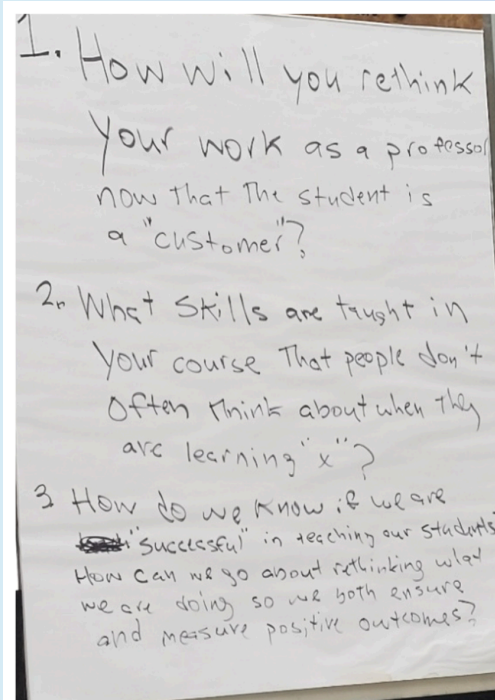 1. How will you rethink
your work as a professor
now that the student is
a "customer"?
2. What skills are taught in
your course that people don't
often think about when they
are learning "x"?
3 How do we know if we are
"successful" in teaching our students?
How can we go about rethinking what
we are doing so we both ensure
and measure positive outcomes?